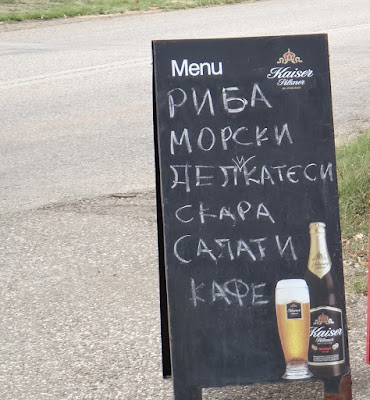 Menu
Kaiser
Pilsner
РИБА
МОРСКИ
ДЕЛИКАТЕСИ
СКАРА
САЛАТИ
КАФЕ
Kaiser
Pilsner